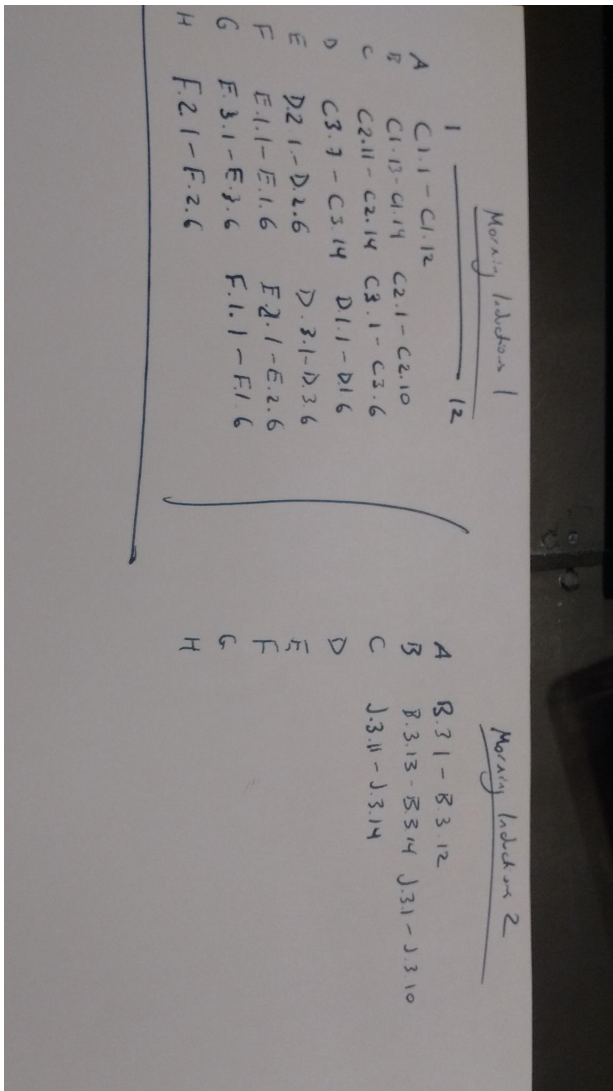 Morning Inductions 1
1 12
A C1.1 - C1.12
B C1.13 - C1.14 C2.1 - C2.10
C C2.11 - C2.14 C3.1 - C3.6
D C3.7 - C3.14 D1.1 - D.1 6
E D.2 1. - D.2.6 D.3.1 - D.3.6
F E.1.1 - E.1.6 E.2.1 - E.2.6
G E.3.1 - E.3.6 F.1.1 - F.1.6
H F.2.1 - F.2.6
Morning Inductions 2
A B.3 1 - B.3.12
B B.3.13 - B.3.14 J.3.1 - J.3.10
C J.3.11 - J.3.14
D
E
F
G
H